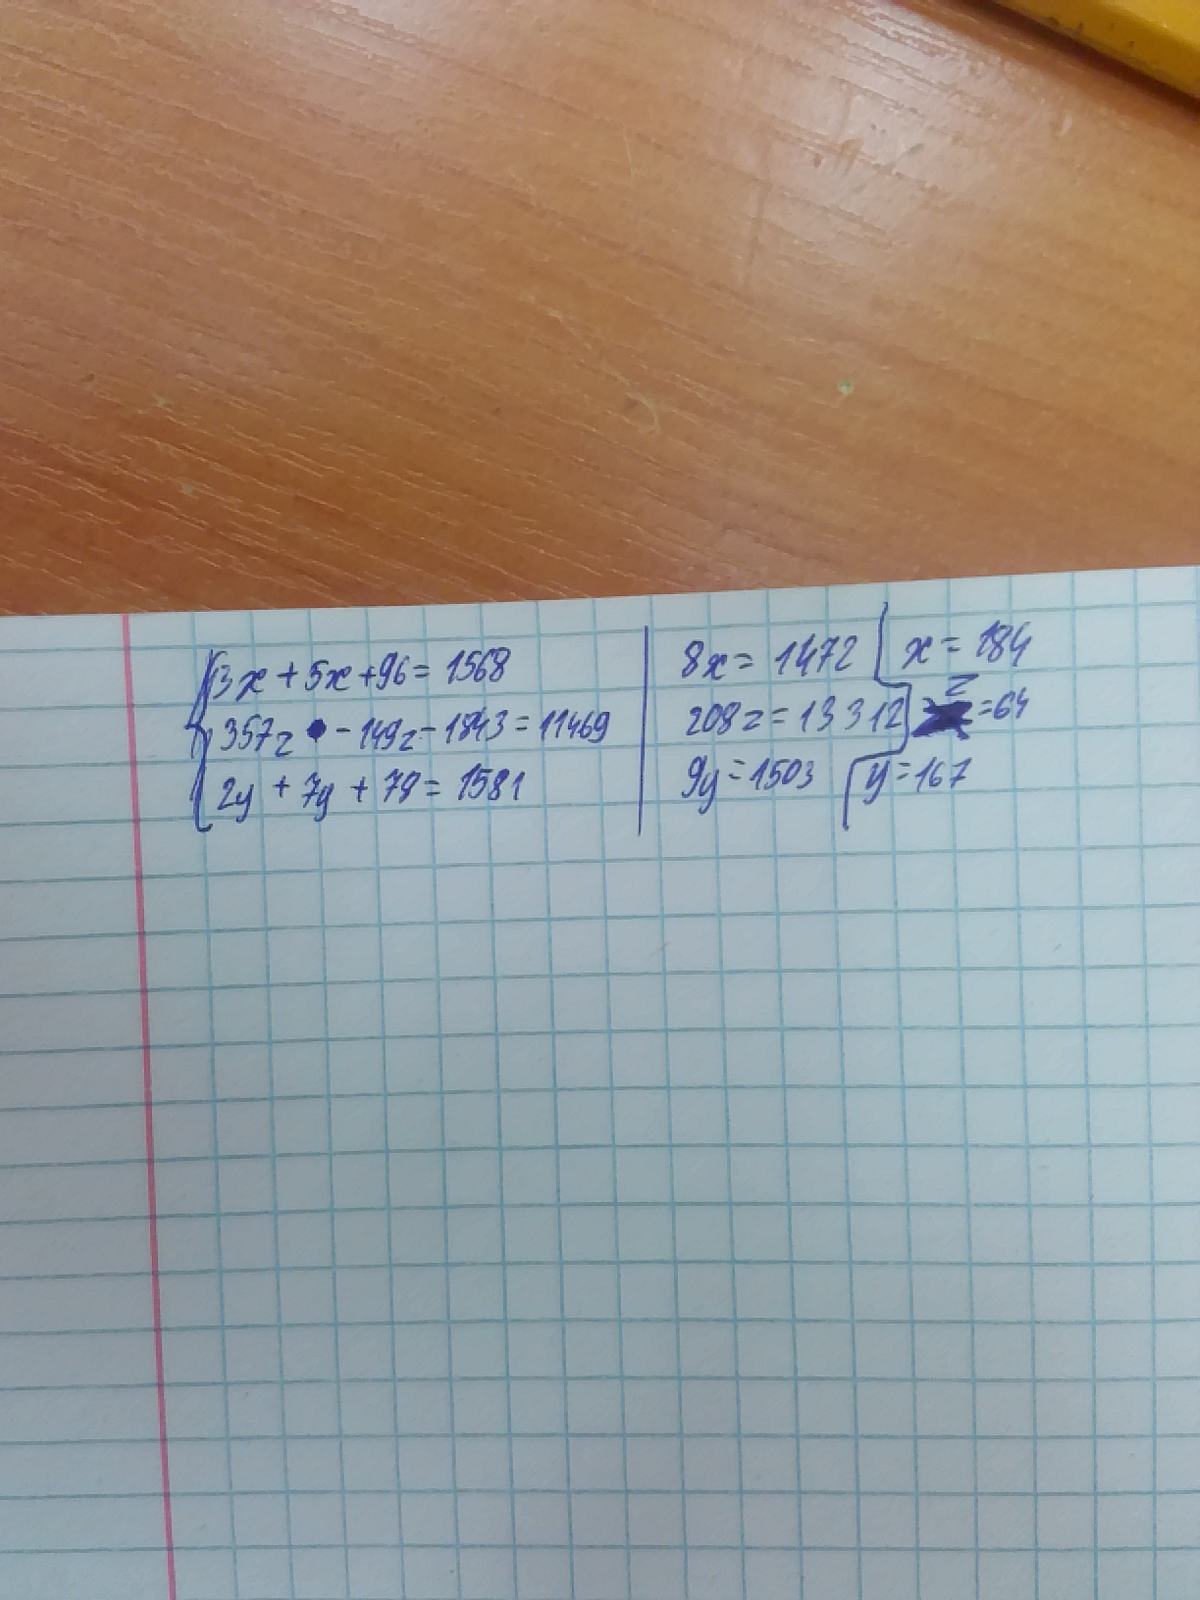 3x + 5x + 96 = 1568
357z - 149z - 1843 = 11469
2y + 7y + 78 = 1581
8x = 1472
208z = 13312
9y = 1503
x = 184
z = 64
y = 167